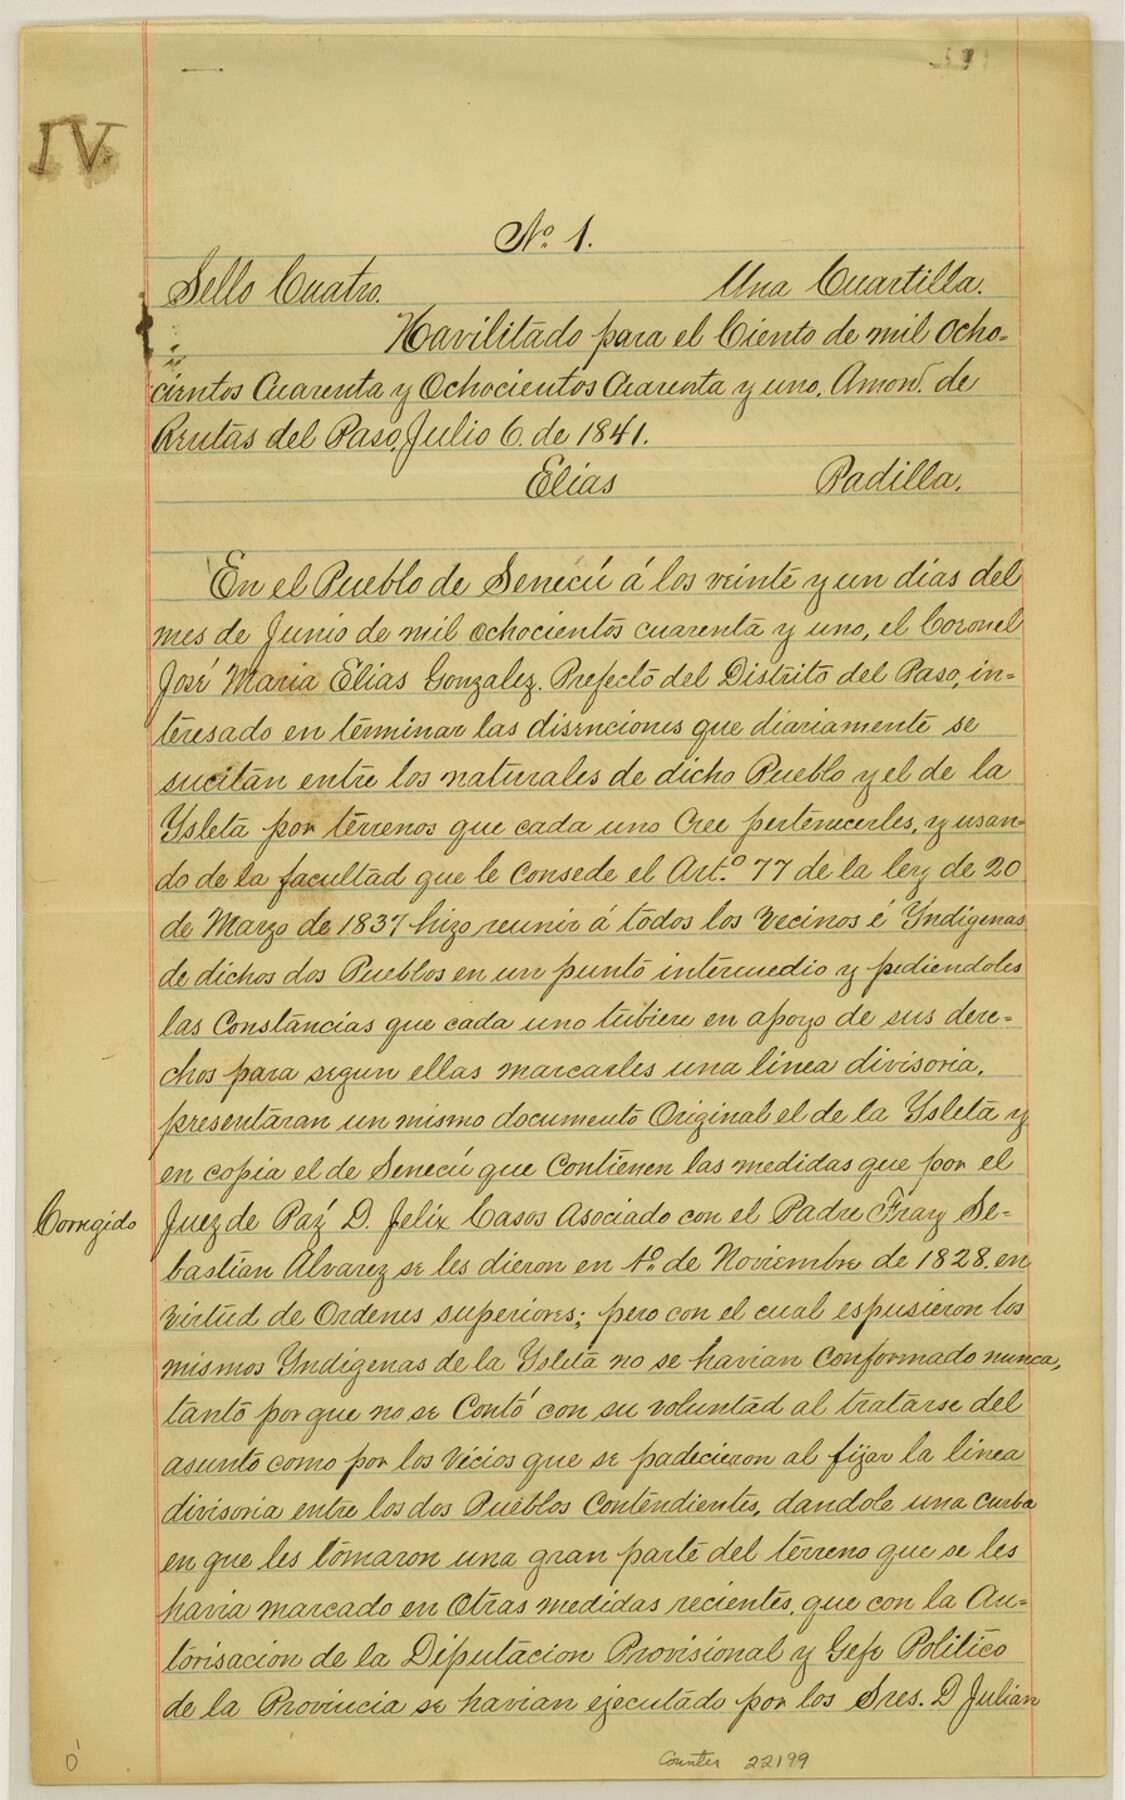 IV.
Nº 1.
Sello Cuatro. Una Cuartilla.
Havilitado para el Ciento de mil Ocho=
cientos Cuarenta y Ochocientos Cuarenta y uno. Amon. de
Rentas del Paso, Julio 6. de 1841.
Elias Padilla.
En el Pueblo de Senecú á los veinte y un dias del
mes de Junio de mil ochocientos cuarenta y uno, el Coronel
José Maria Elias Gonzalez. Prefecto del Distrito del Paso, in=
teresado en terminar las disenciones que diariamente se
sucitan entre los naturales de dicho Pueblo y el de la
Ysleta por terrenos que cada uno Cree pertenecerles, y usan=
do de la facultad que le Consede el Art.º 77 de la ley de 20
de Marzo de 1837 hizo reunir á todos los Vecinos é Yndigenas
de dichos dos Pueblos en un punto intermedio y pediendoles
las Constancias que cada uno tubiere en apoyo de sus dere=
chos para segun ellas marcarles una linea divisoria,
presentaran un mismo documento Original el de la Ysleta y
en copia el de Senecú que Contienen las medidas que por el
Corregido
Juez de Paz D. Felix Casos Asociado con el Padre Fray Se=
bastian Alvarez se les dieron en 1º de Noviembre de 1828. en
virtud de Ordenes superiores; pero con el cual espusieron los
mismos Yndigenas de la Ysleta no se havian Conformado nunca,
tanto por que no se Contó con su voluntad al tratarse del
asunto como por los Vicios que se padecieron al fijar la linea
divisoria entre los dos Pueblos Contendientes, dandole una curba
en que les tomaron una gran parte del terreno que se les
havia marcado en Otras medidas recientes, que con la Au=
torisacion de la Diputacion Provisional y Gefe Politico
de la Provincia se havian ejecutado por los Sres. D Julian
Counter 22199